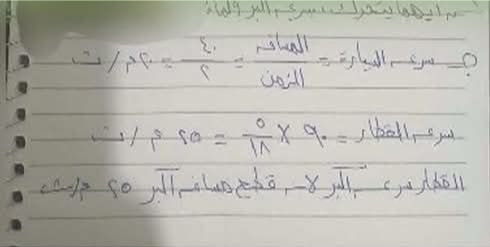 أيهما يتحرك بسرعة أكبر ولماذا
جـ سرعة السيارة = المسافة / الزمن = ٤٠ / ٢ = ٢٠ م/ث
سرعة القطار = ٩٠ × ٥ / ١٨ = ٢٥ م/ث
القطار سرعته أكبر لانه قطع مسافة أكبر ٢٥ م/ث